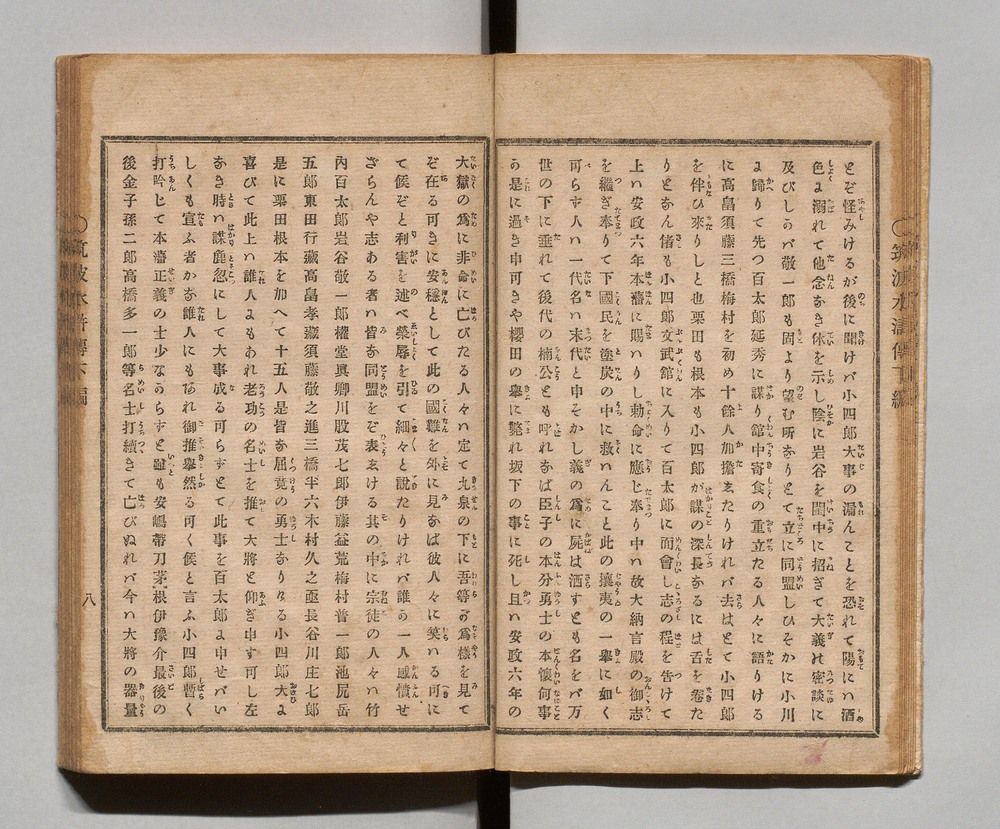 とぞ怪みけるが後に聞けバ小四郎大事の漏んことを恐れて陽にハ酒
色よ溺れて他念なき体を示し陰に岩谷を閨中に招ぎて大義の密談に
及びしのバ敬一郎も固より望む所なりとて立に同盟しひそかに小川
よ歸りて先つ百太郎延秀に謀り館中寄食の重立たる人々に語りける
に高畠須藤三橋梅村を初め十餘人加擔ゑたりけれバ去はとて小四郎
を伴ひ來りしと也栗田も根本も小四郎が謀の深長なるには舌を卷た
りとなん偖も小四郎文武館に入りて百太郎に面會し志の程を告けて
上ハ安政六年本藩に賜ハりし勅命に應じ奉り中ハ故大納言殿の御志
を繼ぎ奉りて下國民を塗炭の中に救ハんこと此の攘夷の一擧に如く
可らす人ハ一代名ハ末代と申そかし義の爲に屍は洒すとも名をバ万
世の下に垂れて後代の楠公とも呼れなば臣子の本分勇士の本懷何事
う是に過き申可きや櫻田の擧に斃れ坂下の事に死し且ハ安政六年の
大獄の爲に非命に亡びたる人々ハ定て九泉の下に吾等の爲樣を見て
ぞ在る可きに安穩として此の國難を外に見なば彼人々に笑ハる可に
て候ぞと利害を述べ榮辱を引て細々と說たりけれバ誰う一人感憤せ
ざらんや志ある者ハ皆な同盟をぞ表ゑける其の中に宗徒の人々ハ竹
內百太郎岩谷敬一郎權堂眞卿川股茂七郎伊藤益荒梅村晋一郎池尻岳
五郎東田行藏高畠孝藏須藤敬之進三橋半六木村久之亟長谷川庄七郎
是に栗田根本を加へて十五人是皆な屈竟の勇士なりける小四郎大よ
喜びて此上ハ誰人よもあれ老功の名士を推て大將と仰ぎ申す可し左
なき時ハ謀鹿忽にして大事成る可らすとて此事を百太郎よ申せバい
しくも宣ふ者かな誰人にもあれ御推擧然る可く候と言ふ小四郎暫く
打吟じて本藩正義の士少なうらすと雖も安嶋帶刀茅根伊豫介最後の
後金子孫二郎高橋多一郎等名士打續きて亡びぬれバ今ハ大將の器量
八